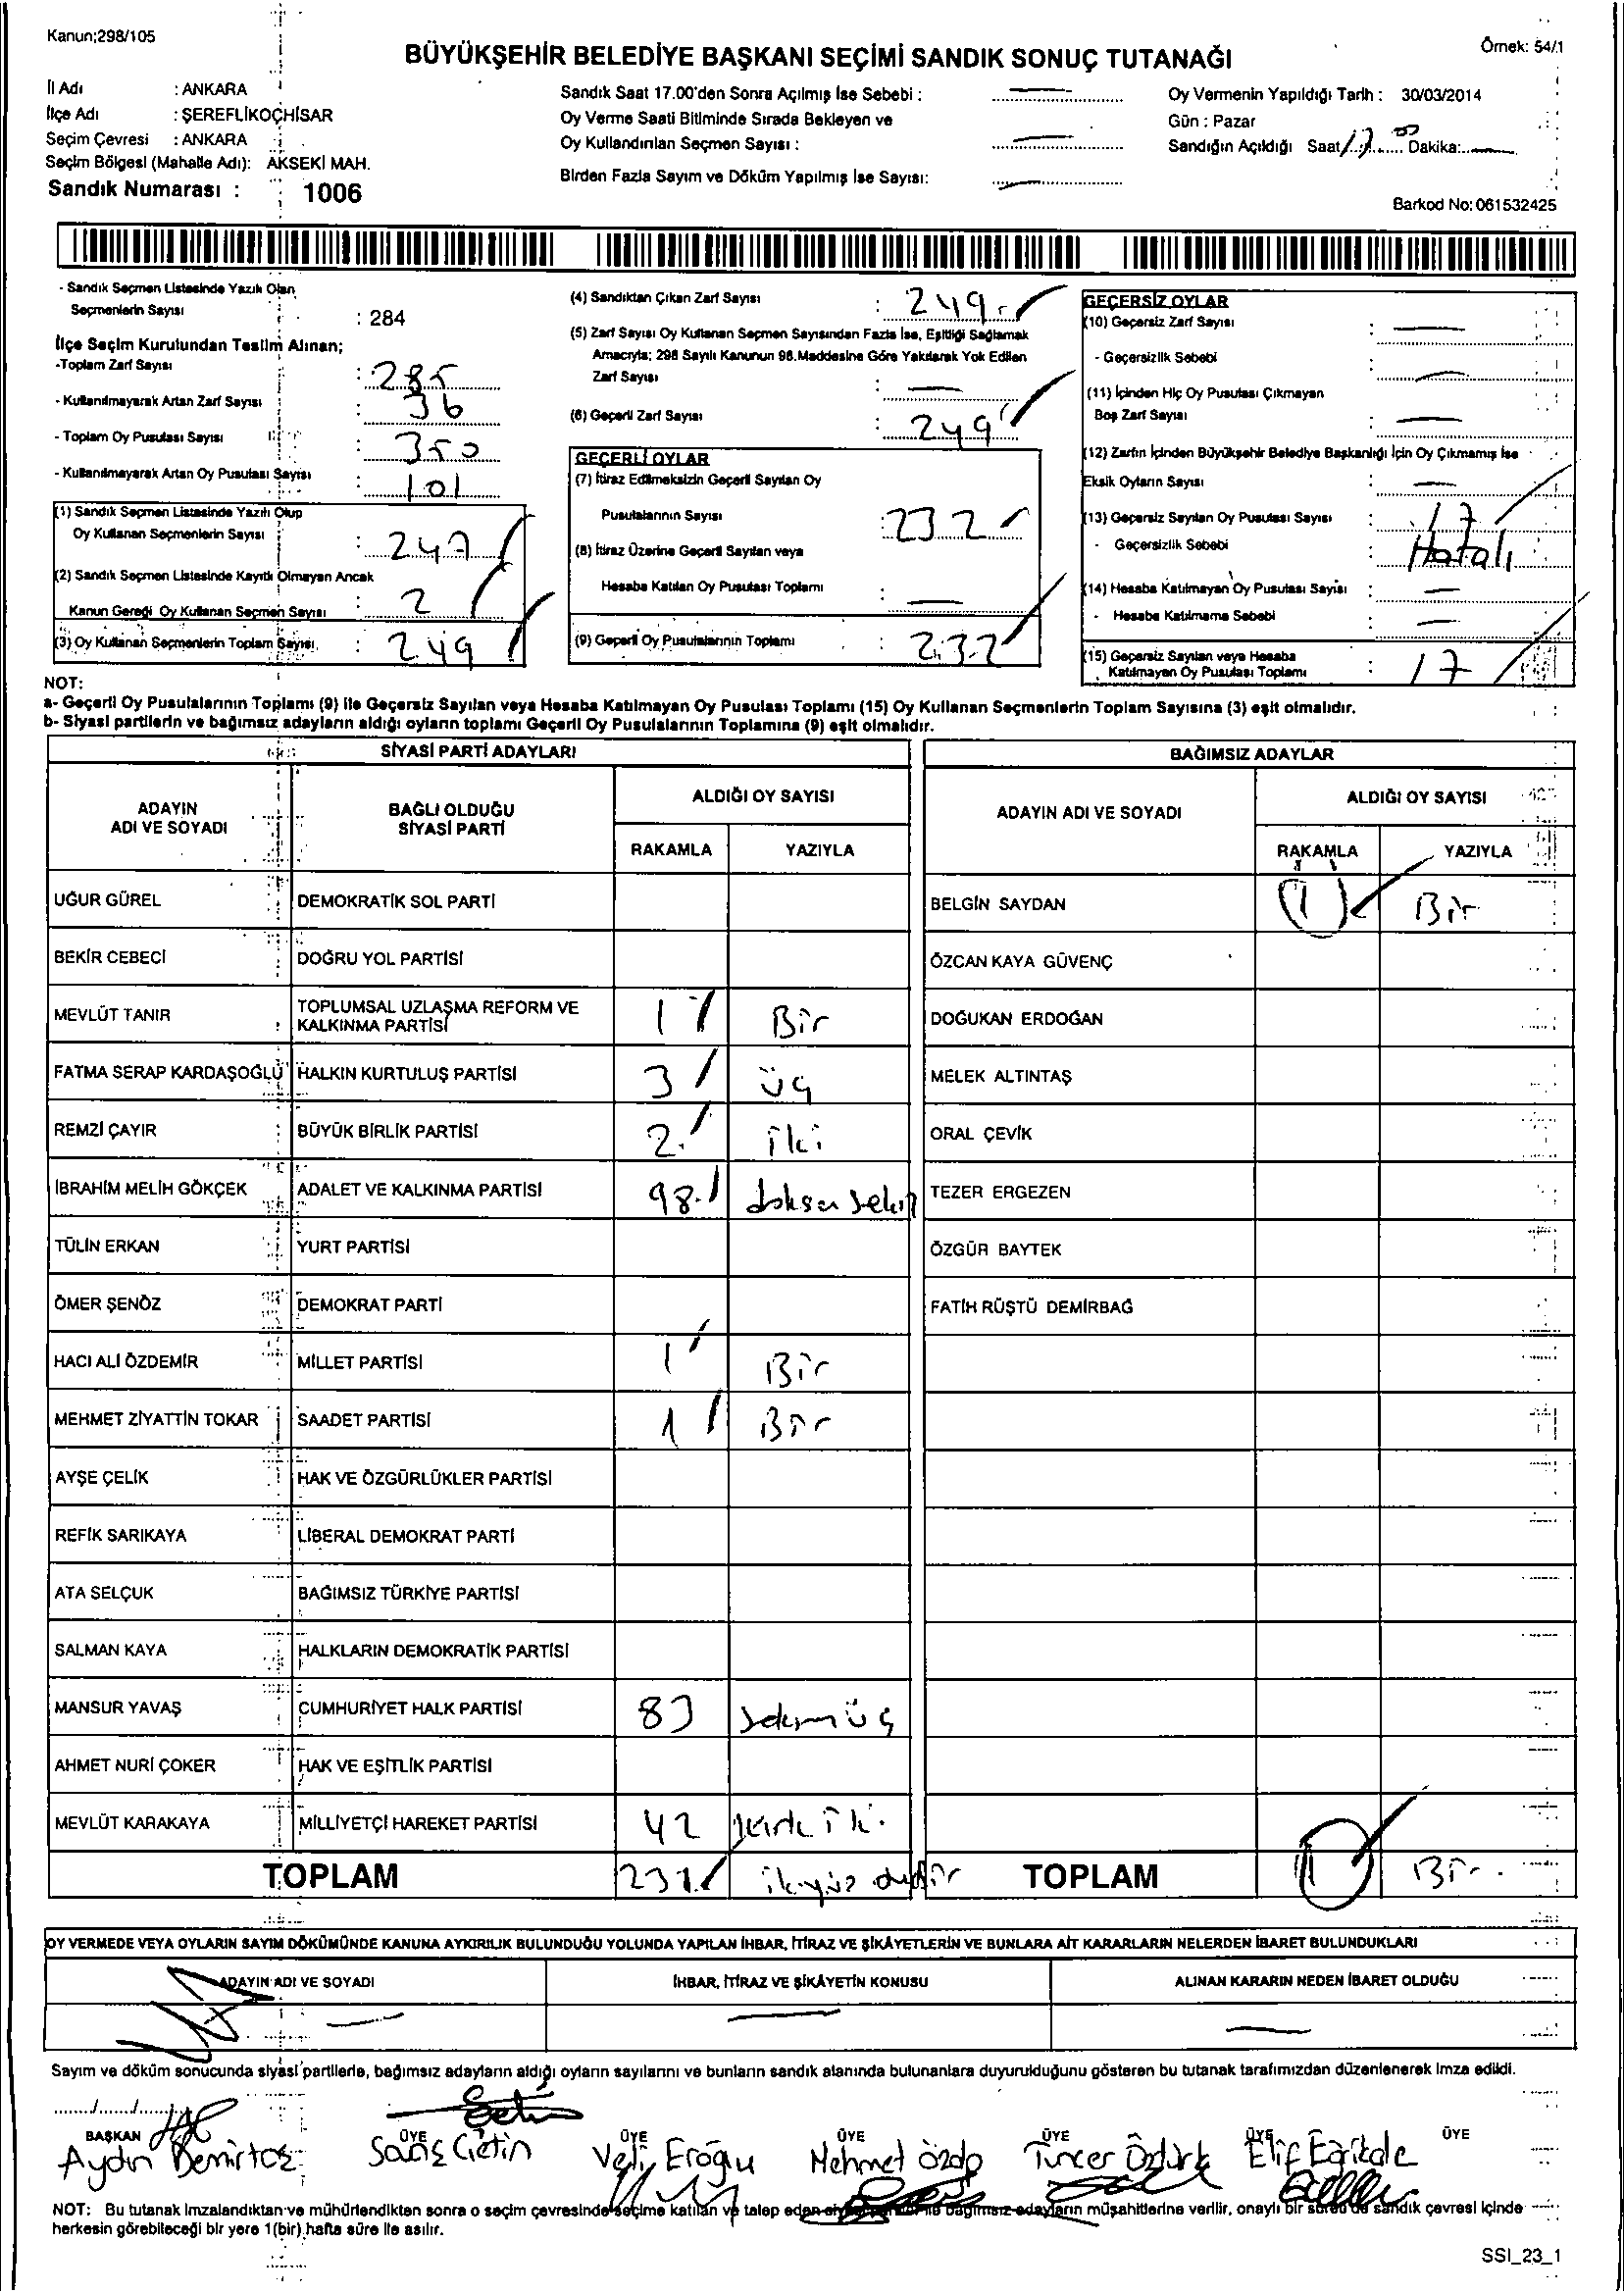 Kanun;298/105
Örnek: 54/1
BÜYÜKŞEHİR BELEDİYE BAŞKANI SEÇİMİ SANDIK SONUÇ TUTANAĞI
İl Adı : ANKARA
İlçe Adı : ŞEREFLİKOÇHİSAR
Seçim Çevresi : ANKARA
Seçim Bölgesi (Mahalle Adı): AKSEKİ MAH.
Sandık Numarası : 1006
Sandık Saat 17.00'den Sonra Açılmış İse Sebebi :
Oy Verme Saati Bitiminde Sırada Bekleyen ve
Oy Kullandırılan Seçmen Sayısı :
Birden Fazla Sayım ve Döküm Yapılmış İse Sayısı:
Oy Vermenin Yapıldığı Tarih : 30/03/2014
Gün : Pazar
Sandığın Açıldığı Saat 17.00 Dakika:
Barkod No: 061532425
- Sandık Seçmen Listesinde Yazılı Olan
Seçmenlerin Sayısı : 284
İlçe Seçim Kurulundan Teslim Alınan;
-Toplam Zarf Sayısı : 285
- Kullanılmayarak Artan Zarf Sayısı : 36
- Toplam Oy Pusulası Sayısı : 350
- Kullanılmayarak Artan Oy Pusulası Sayısı : 101
(1) Sandık Seçmen Listesinde Yazılı Olup
Oy Kullanan Seçmenlerin Sayısı : 247
(2) Sandık Seçmen Listesinde Kayıtlı Olmayan Ancak
Kanun Gereği Oy Kullanan Seçmen Sayısı : 2
(3) Oy Kullanan Seçmenlerin Toplam Sayısı : 249
(4) Sandıktan Çıkan Zarf Sayısı : 249
(5) Zarf Sayısı Oy Kullanan Seçmen Sayısından Fazla İse, Eşitliği Sağlamak
Amacıyla; 298 Sayılı Kanunun 98.Maddesine Göre Yakılarak Yok Edilen
Zarf Sayısı :
(6) Geçerli Zarf Sayısı : 249
GEÇERLİ OYLAR
(7) İtiraz Edilmeksizin Geçerli Sayılan Oy
Pusulalarının Sayısı : 232
(8) İtiraz Üzerine Geçerli Sayılan veya
Hesaba Katılan Oy Pusulası Toplamı :
(9) Geçerli Oy Pusulalarının Toplamı : 232
GEÇERSİZ OYLAR
(10) Geçersiz Zarf Sayısı :
- Geçersizlik Sebebi :
(11) İçinden Hiç Oy Pusulası Çıkmayan
Boş Zarf Sayısı :
(12) Zarfın İçinden Büyükşehir Belediye Başkanlığı İçin Oy Çıkmamış İse
Eksik Oyların Sayısı :
(13) Geçersiz Sayılan Oy Pusulası Sayısı : 17
- Geçersizlik Sebebi : Hatalı
(14) Hesaba Katılmayan Oy Pusulası Sayısı :
- Hesaba Katılmama Sebebi :
(15) Geçersiz Sayılan veya Hesaba
Katılmayan Oy Pusulası Toplamı : 17
NOT:
a- Geçerli Oy Pusulalarının Toplamı (9) ile Geçersiz Sayılan veya Hesaba Katılmayan Oy Pusulası Toplamı (15) Oy Kullanan Seçmenlerin Toplam Sayısına (3) eşit olmalıdır.
b- Siyasi partilerin ve bağımsız adayların aldığı oyların toplamı Geçerli Oy Pusulalarının Toplamına (9) eşit olmalıdır.
SİYASİ PARTİ ADAYLARI
BAĞIMSIZ ADAYLAR
ADAYIN ADI VE SOYADI
BAĞLI OLDUĞU SİYASİ PARTİ
ALDIĞI OY SAYISI
RAKAMLA YAZIYLA
ADAYIN ADI VE SOYADI
ALDIĞI OY SAYISI
RAKAMLA YAZIYLA
UĞUR GÜREL DEMOKRATİK SOL PARTİ BELGİN SAYDAN 1 Bir
BEKİR CEBECİ DOĞRU YOL PARTİSİ ÖZCAN KAYA GÜVENÇ
MEVLÜT TANIR TOPLUMSAL UZLAŞMA REFORM VE KALKINMA PARTİSİ 1 Bir DOĞUKAN ERDOĞAN
FATMA SERAP KARDAŞOĞLU HALKIN KURTULUŞ PARTİSİ 3 üç MELEK ALTINTAŞ
REMZİ ÇAYIR BÜYÜK BİRLİK PARTİSİ 2 iki ORAL ÇEVİK
İBRAHİM MELİH GÖKÇEK ADALET VE KALKINMA PARTİSİ 98 doksan sekiz TEZER ERGEZEN
TÜLİN ERKAN YURT PARTİSİ ÖZGÜR BAYTEK
ÖMER ŞENÖZ DEMOKRAT PARTİ FATİH RÜŞTÜ DEMİRBAĞ
HACI ALİ ÖZDEMİR MİLLET PARTİSİ 1 Bir
MEHMET ZİYATTİN TOKAR SAADET PARTİSİ 1 Bir
AYŞE ÇELİK HAK VE ÖZGÜRLÜKLER PARTİSİ
REFİK SARIKAYA LİBERAL DEMOKRAT PARTİ
ATA SELÇUK BAĞIMSIZ TÜRKİYE PARTİSİ
SALMAN KAYA HALKLARIN DEMOKRATİK PARTİSİ
MANSUR YAVAŞ CUMHURİYET HALK PARTİSİ 83 seksenüç
AHMET NURİ ÇOKER HAK VE EŞİTLİK PARTİSİ
MEVLÜT KARAKAYA MİLLİYETÇİ HAREKET PARTİSİ 42 kırk iki
TOPLAM 231 TOPLAM 1 Bir
OY VERMEDE VEYA OYLARIN SAYIM DÖKÜMÜNDE KANUNA AYKIRILIK BULUNDUĞU YOLUNDA YAPILAN İHBAR, İTİRAZ VE ŞİKÂYETLERİN VE BUNLARA AİT KARARLARIN NELERDEN İBARET BULUNDUKLARI
ADAYIN ADI VE SOYADI İHBAR, İTİRAZ VE ŞİKÂYETİN KONUSU ALINAN KARARIN NEDEN İBARET OLDUĞU
Sayım ve döküm sonucunda siyasi partilerle, bağımsız adayların aldığı oyların sayılarını ve bunların sandık alanında bulunanlara duyurulduğunu gösteren bu tutanak tarafımızdan düzenlenerek imza edildi.
....../....../..........
BAŞKAN ÜYE ÜYE ÜYE ÜYE ÜYE ÜYE
Aydın Demirtaş Savaş Çetin Veli Eroğlu Mehmet Özdp Tuncer Öztürk Elif Eğrikale
NOT: Bu tutanak imzalandıktan ve mühürlendikten sonra o seçim çevresinde seçime katılan ve talep eden bağımsız adayların müşahitlerine verilir, onaylı bir sureti de sandık çevresi içinde
herkesin görebileceği bir yere 1(bir) hafta süre ile asılır.
SSI_23_1